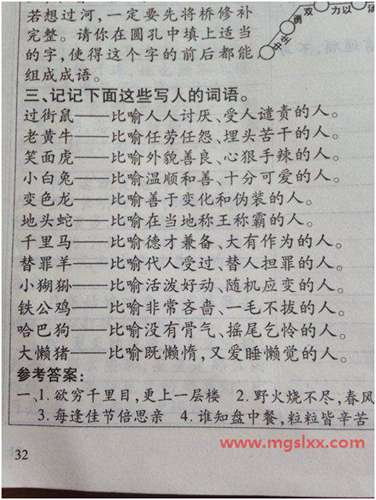 若想过河，一定要先将桥修补
完整。请你在圆孔中填上适当
的字，使得这个字的前后都能
组成成语。
双
力以
三、记记下面这些写人的词语。
过街鼠——比喻人人讨厌、受人谴责的人。
老黄牛——比喻任劳任怨、埋头苦干的人。
笑面虎——比喻外貌善良、心狠手辣的人。
小白兔——比喻温顺和善、十分可爱的人。
变色龙——比喻善于变化和伪装的人。
地头蛇——比喻在当地称王称霸的人。
千里马——比喻德才兼备、大有作为的人。
替罪羊——比喻代人受过、替人担罪的人。
小猢狲——比喻活泼好动、随机应变的人。
铁公鸡——比喻非常吝啬、一毛不拔的人。
哈巴狗——比喻没有骨气、摇尾乞怜的人。
大懒猪——比喻既懒惰，又爱睡懒觉的人。
参考答案：
一、1. 欲穷千里目，更上一层楼 2. 野火烧不尽，春风
3. 每逢佳节倍思亲 4. 谁知盘中餐，粒粒皆辛苦
www.mgslxx.com
32